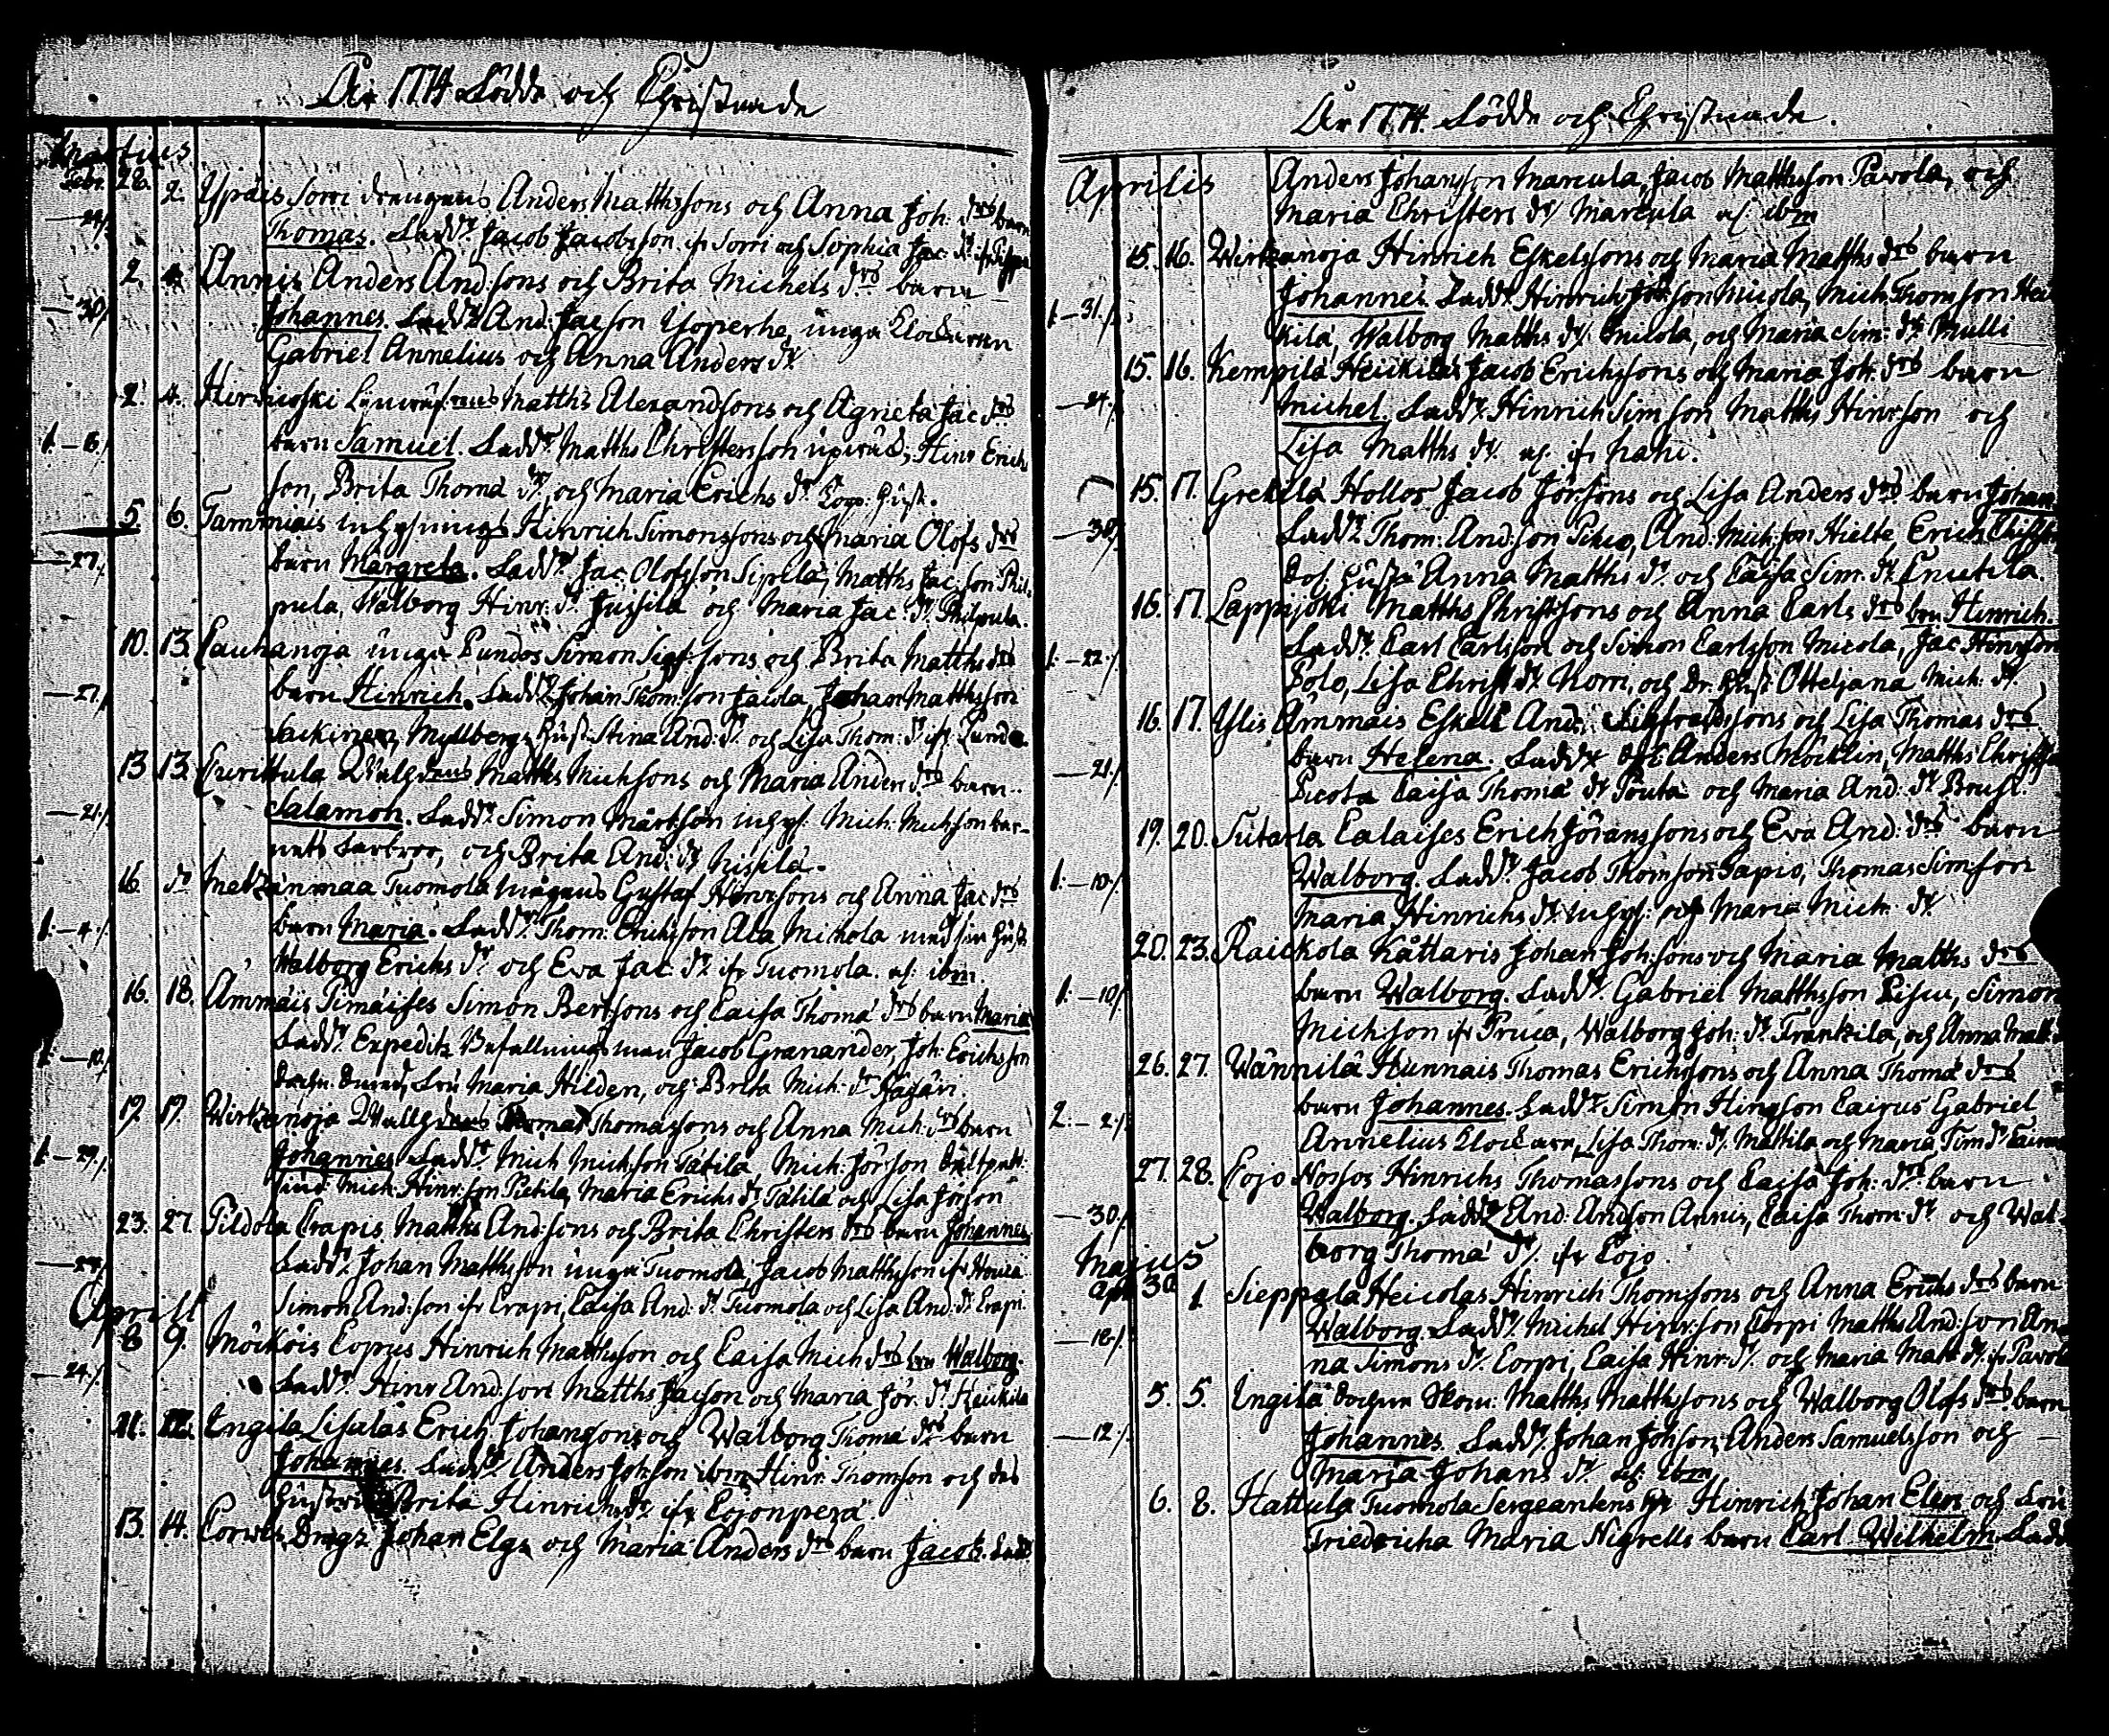 År 1774 Födde och Christnade
Martius
Febr. 28. 2. Ypäis Sorri drengens Anders Matthssons och Anna Joh: drs barn
—29/. Thomas. Faddr. Jacob Jacobsson ifr Sorri och Sophia Jac: dr
2. 4. Annis Anders And:sons och Brita Michels drs barn
—30/. Johannes. Faddr. And: Jacson Yoperhe, unga Clockaren
Gabriel Annelius och Anna Anders dr
2. 4. Matths Alexandsons och Agneta Jac drs
1.—6/. barn Samuel. Faddr. Matths Christersson Hinr Erich
son, Brita Thoma dr, och Maria Erichs dr
5. 6. Tammiais inhysings Hinrich Simonssons och Maria Olofs drs
—27/. barn Margreta. Faddr. Jac: Olofsson Sipilä, Matths Jac:son Phil-
pula, Walborg Hinr: dr Jussila och Maria Jac: dr Philpula.
10. 13. Cauhanoja unga Pundos Simon Sigf:sons och Brita Matths drs
—27/. barn Hinrich. Faddr. Johan Thom:son Jacola, Johan Matthsson
Sackinen, Myllbergs hust. Stina And: dr och Lisa Thom: dr ifr Pundo.
13 13. Curittula Matths Michsons och Maria Anders drs barn
—21/. Salamon. Faddr. Simon Mårtson inhys. Mich: Michson bar-
nets farbror, och Brita And: dr
16. do Metzänmaa Tuomola mågens Gustaf Hinrsons och Anna Jac drs
1.—4/. barn Maria. Faddr. Thom: Erichsson Ala Mickola med sin hust.
Walborg Erichs dr och Eva Jac: dr ifr Tuomola. af ibm.
16. 18. Ämmäis Pimäises Simon Bertsons och Caisa Thoma drs barn Maria
1.—10/. Faddr. Expedit. Befallningsman Jacob Granander, Joh: Erichsson
Maria Hilden, och Brita Mich: dr
17. 17. Wirtzanoja Thomassons och Anna Mich: drs barn
1.—29/. Johannes. Faddr. Mich Michson Tätilä, Mich: Jör:son
Mich: Hinr:son Pietilä, Maria Erichs dr Tätilä och Lisa Jörson
23. 27. Pildola Crapis Matths And:sons och Brita Christers drs barn Johannes
—27/. Faddr. Johan Matthsson unga Tuomola, Jacob Matthsson ifr
Simon And:son ifr Crapi, Caisa And: dr Tuomola och Lisa And: dr Crapi.
Aprill
8 9. Möicköis Eopus Hinrich Matthsson och Caisa Mich drs barn Walborg.
—24/. Faddr. Hinr And:son Matths Jacson och Maria Jör: dr Heickilä
11. 12. Ingila Lisaläs Erich Johansons och Walborg Thoma drs barn
Johannes. Faddr. Anders Johson ibm, Hinr Thomson och des
hustru Brita Hinrichsdr. ifr Cojonperä.
13. 14. Corvels Drags Johan Elgs och Maria Anders drs barn Jacob. Fadd
År 1774. Födde och Christnade.
Aprilis Anders Johansson Marcula, Jacob Matthsson Pavola, och
Maria Christers dr Marcula af ibm
15. 16. Wirtzanoja Hinrich Eskelssons och Maria Matths drs barn
1.—31/. Johannes. Faddr. Hinrich Jör:son Micola, Mich: Thomson Hei
kilä, Walborg Matths dr Micola, och Maria Sim: dr Mulli
15. 16. Kempilä Heickiläs Jacob Erichssons och Maria Joh: drs barn
—24/. Michel. Faddr. Hinrich Simson, Matths Hinrson och
Lisa Matths dr af ifr
15. 17. Grekilä Hollos Jacob Jörsons och Lisa Anders drs barn Johan
—30/. Faddr. Thom: And:son And: Mich:son Hielte, Erich
hustru Anna Matths dr och Caisa Sim: dr Cnutila.
16. 17. Lappijoki Matths Christsons och Anna Carls drs barn Hinrich.
1.—22/. Faddr. Carl Carlsson och Simon Carlsson Micola, Jac: Hinrson
Polo, Lisa Christ: dr Norri, och Dr. hust. Otteljana Mich: dr.
16. 17. Ylis Ämmäis Eskell And: Sigfredssons och Lisa Thomas drs
—21/. barn Helena. Faddr. Anders Möcklin, Matths
Picola Caisa Thoma dr Pouta och Maria And: dr
19. 20. Sutarla Calaises Erich Jöranssons och Eva And: drs barn
1.—10/. Walborg. Faddr. Jacob Thomson Papio, Thomas Simson
Maria Hinrichs dr inhys: och Maria Mich: dr
20. 23. Raickola Kättäris Johan Joh:sons och Maria Matths drs
1.—10/. barn Walborg. Faddr. Gabriel Matthsson Simon
Michson ifr Pruca, Walborg Joh: dr Franckila, och Anna Matt
26. 27. Wännilä Hunnais Thomas Erichsons och Anna Thoma drs
2.—2/. barn Johannes. Faddr. Simon Hinrson Cairus Gabriel
Annelius Clockaren, Lisa Thom: dr Mattila och Maria Sim: dr
27. 28. Cojo Nossos Hinrichs Thomassons och Caisa Joh: drs barn
—30/. Walborg. Faddr. And: Andson Annis, Caisa Thom: dr och Wal-
borg Thoma dr ifr Cojo.
Majus
Apr. 30 1. Sieppälä Heicolas Hinrich Thomsons och Anna Erichs drs barn
—18/. Walborg. Faddr. Michel Hinr:son Corpi Matths And:son An
na Simons dr Corpi, Caisa Hinr: dr och Maria Matt dr ifr Pavola
5. 5. Ingilä Matths Matthssons och Walborg Olofs drs barn
—12/. Johannes. Faddr. Johan Johson, Anders Samuelsson och
Maria Johans dr af ibm
6. 8. Hattula Tuomola Sergeantens Hinrich Johan Elers och Fru
Friedricha Maria Nigrells barn Carl Wilhelm. Fadd